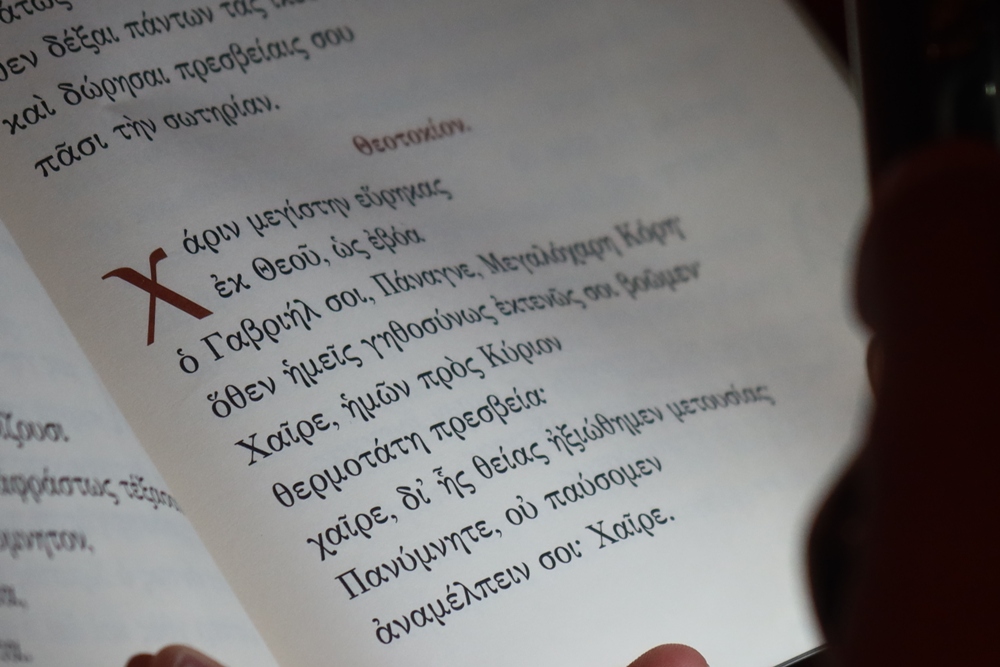 δέξαι πάντων τὰς
καὶ δώρησαι πρεσβείαις σου
πᾶσι τὴν σωτηρίαν.
Θεοτοκίον.
Χάριν μεγίστην εὕρηκας
ἐκ Θεοῦ, ὡς ἐβόα
ὁ Γαβριήλ σοι, Πάναγνε, Μεγαλόχαρη Κόρη·
ὅθεν ἡμεῖς γηθοσύνως ἐκτενῶς σοι βοῶμεν·
Χαῖρε, ἡμῶν πρὸς Κύριον
θερμοτάτη πρεσβεία·
χαῖρε, δι' ἧς θείας ἠξιώθημεν μετουσίας
Πανύμνητε, οὐ παύσομεν
ἀναμέλπειν σοι· Χαῖρε.